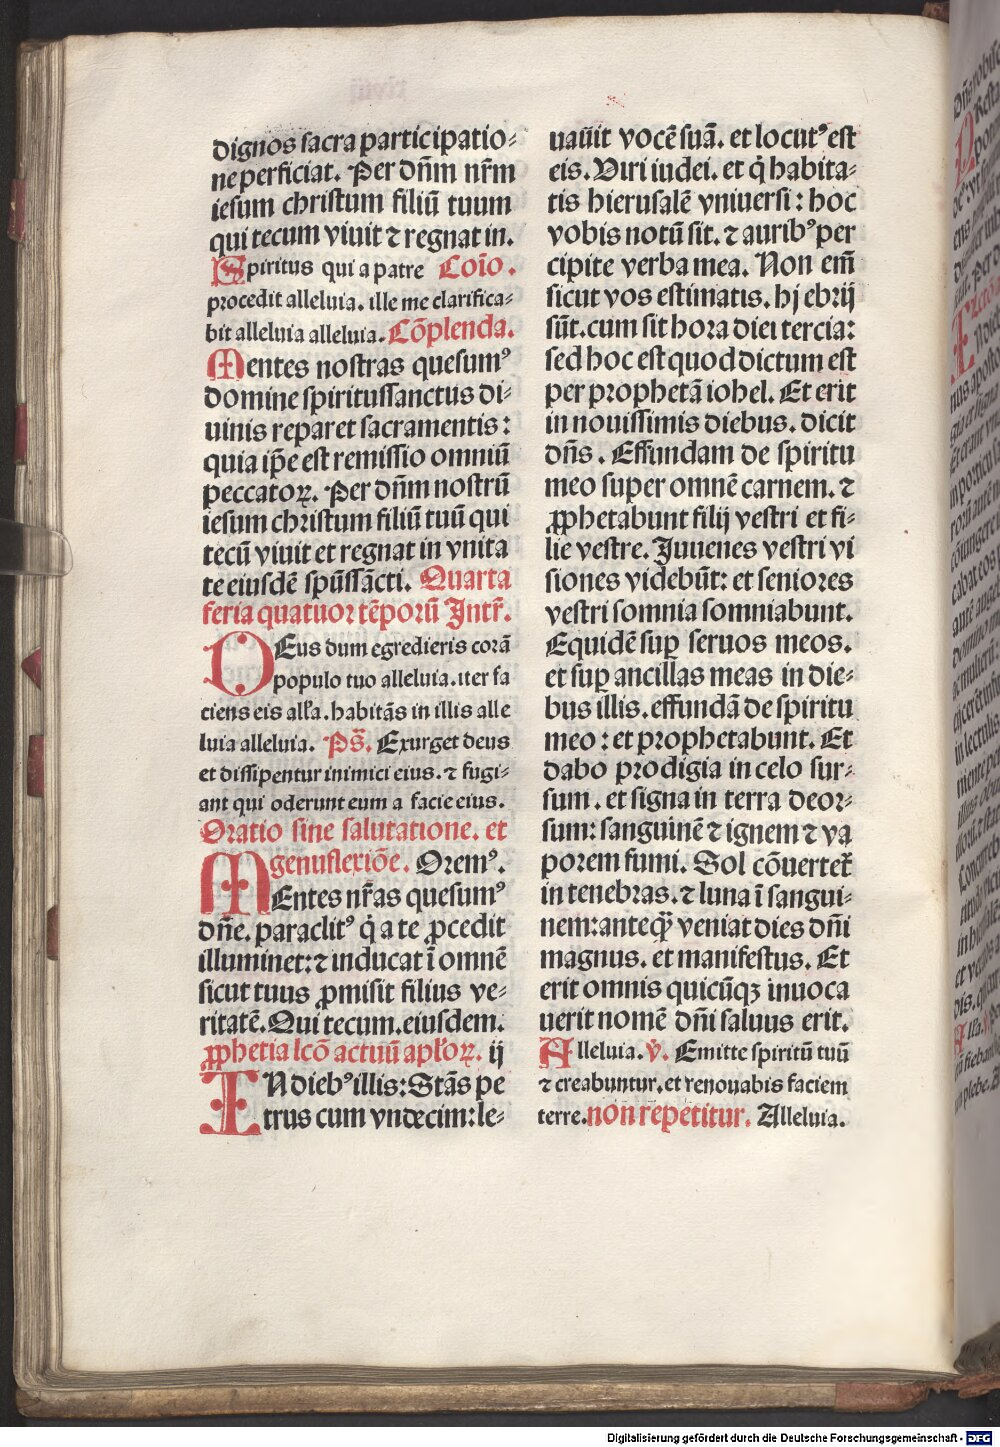 dignos sacra participatio⸗
ne perficiat. Per dn̄m nr̄m
iesum christum filiū tuum
qui tecum viuit ⁊ regnat in.
Spiritus qui a patre Coīo.
procedit alleluia. ille me clarifica⸗
bit alleluia alleluia. Cōplenda.
Mentes nostras quesumꝰ
domine spiritussanctus di⸗
uinis reparet sacramentis:
quia ip̄e est remissio omniū
peccatoꝝ. Per dn̄m nostrū
iesum christum filiū tuū qui
tecū viuit et regnat in vnita
te eiusdē spūssācti. Quarta
feria quatuor tēporū Intr̄.
DEus dum egredieris corā
populo tuo alleluia. iter fa
ciens eis all̄a. habitās in illis alle
luia alleluia. Ps̄. Exurget deus
et dissipentur inimici eius. ⁊ fugi⸗
ant qui oderunt eum a facie eius.
Oratio sine salutatione. et
genuflexiōe. Oremꝰ.
MEntes nr̄as quesumꝰ
dn̄e. paraclitꝰ q̇ a te ꝓcedit
illuminet: ⁊ inducat ī omnē
sicut tuus ꝓmisit filius ve⸗
ritatē. Qui tecum. eiusdem.
ꝓphetia lcō actuū apl̄oꝝ. ij
IN diebꝰ illis: Stās pe
trus cum vndecim: le⸗
uauit vocē suā. et locutꝰ est
eis. Viri iudei. et q̇ habita⸗
tis hierusalē vniuersi: hoc
vobis notū sit. ⁊ auribꝰ per
cipite verba mea. Non em̄
sicut vos estimatis. hj ebrij
sūt. cum sit hora diei tercia:
sed hoc est quod dictum est
per prophetā iohel. Et erit
in nouissimis diebus. dicit
dn̄s. Effundam de spiritu
meo super omnē carnem. ⁊
ꝓphetabunt filij vestri et fi⸗
lie vestre. Iuuenes vestri vi
siones videbūt: et seniores
vestri somnia somniabunt.
Equidē suꝑ seruos meos.
et suꝑ ancillas meas in die⸗
bus illis. effundā de spiritu
meo: et prophetabunt. Et
dabo prodigia in celo sur⸗
sum. et signa in terra deor⸗
sum: sanguinē ⁊ ignem ⁊ va
porem fumi. Sol cōuertet̄
in tenebras. ⁊ luna ī sangui⸗
nem: anteq̄ȝ veniat dies dn̄i
magnus. et manifestus. Et
erit omnis quicūqꝫ inuoca
uerit nomē dn̄i saluus erit.
Alleluia. ꝟ. Emitte spiritū tuū
⁊ creabuntur. et renouabis faciem
terre. non repetitur. Alleluia.
Digitalisierung gefördert durch die Deutsche Forschungsgemeinschaft - DFG